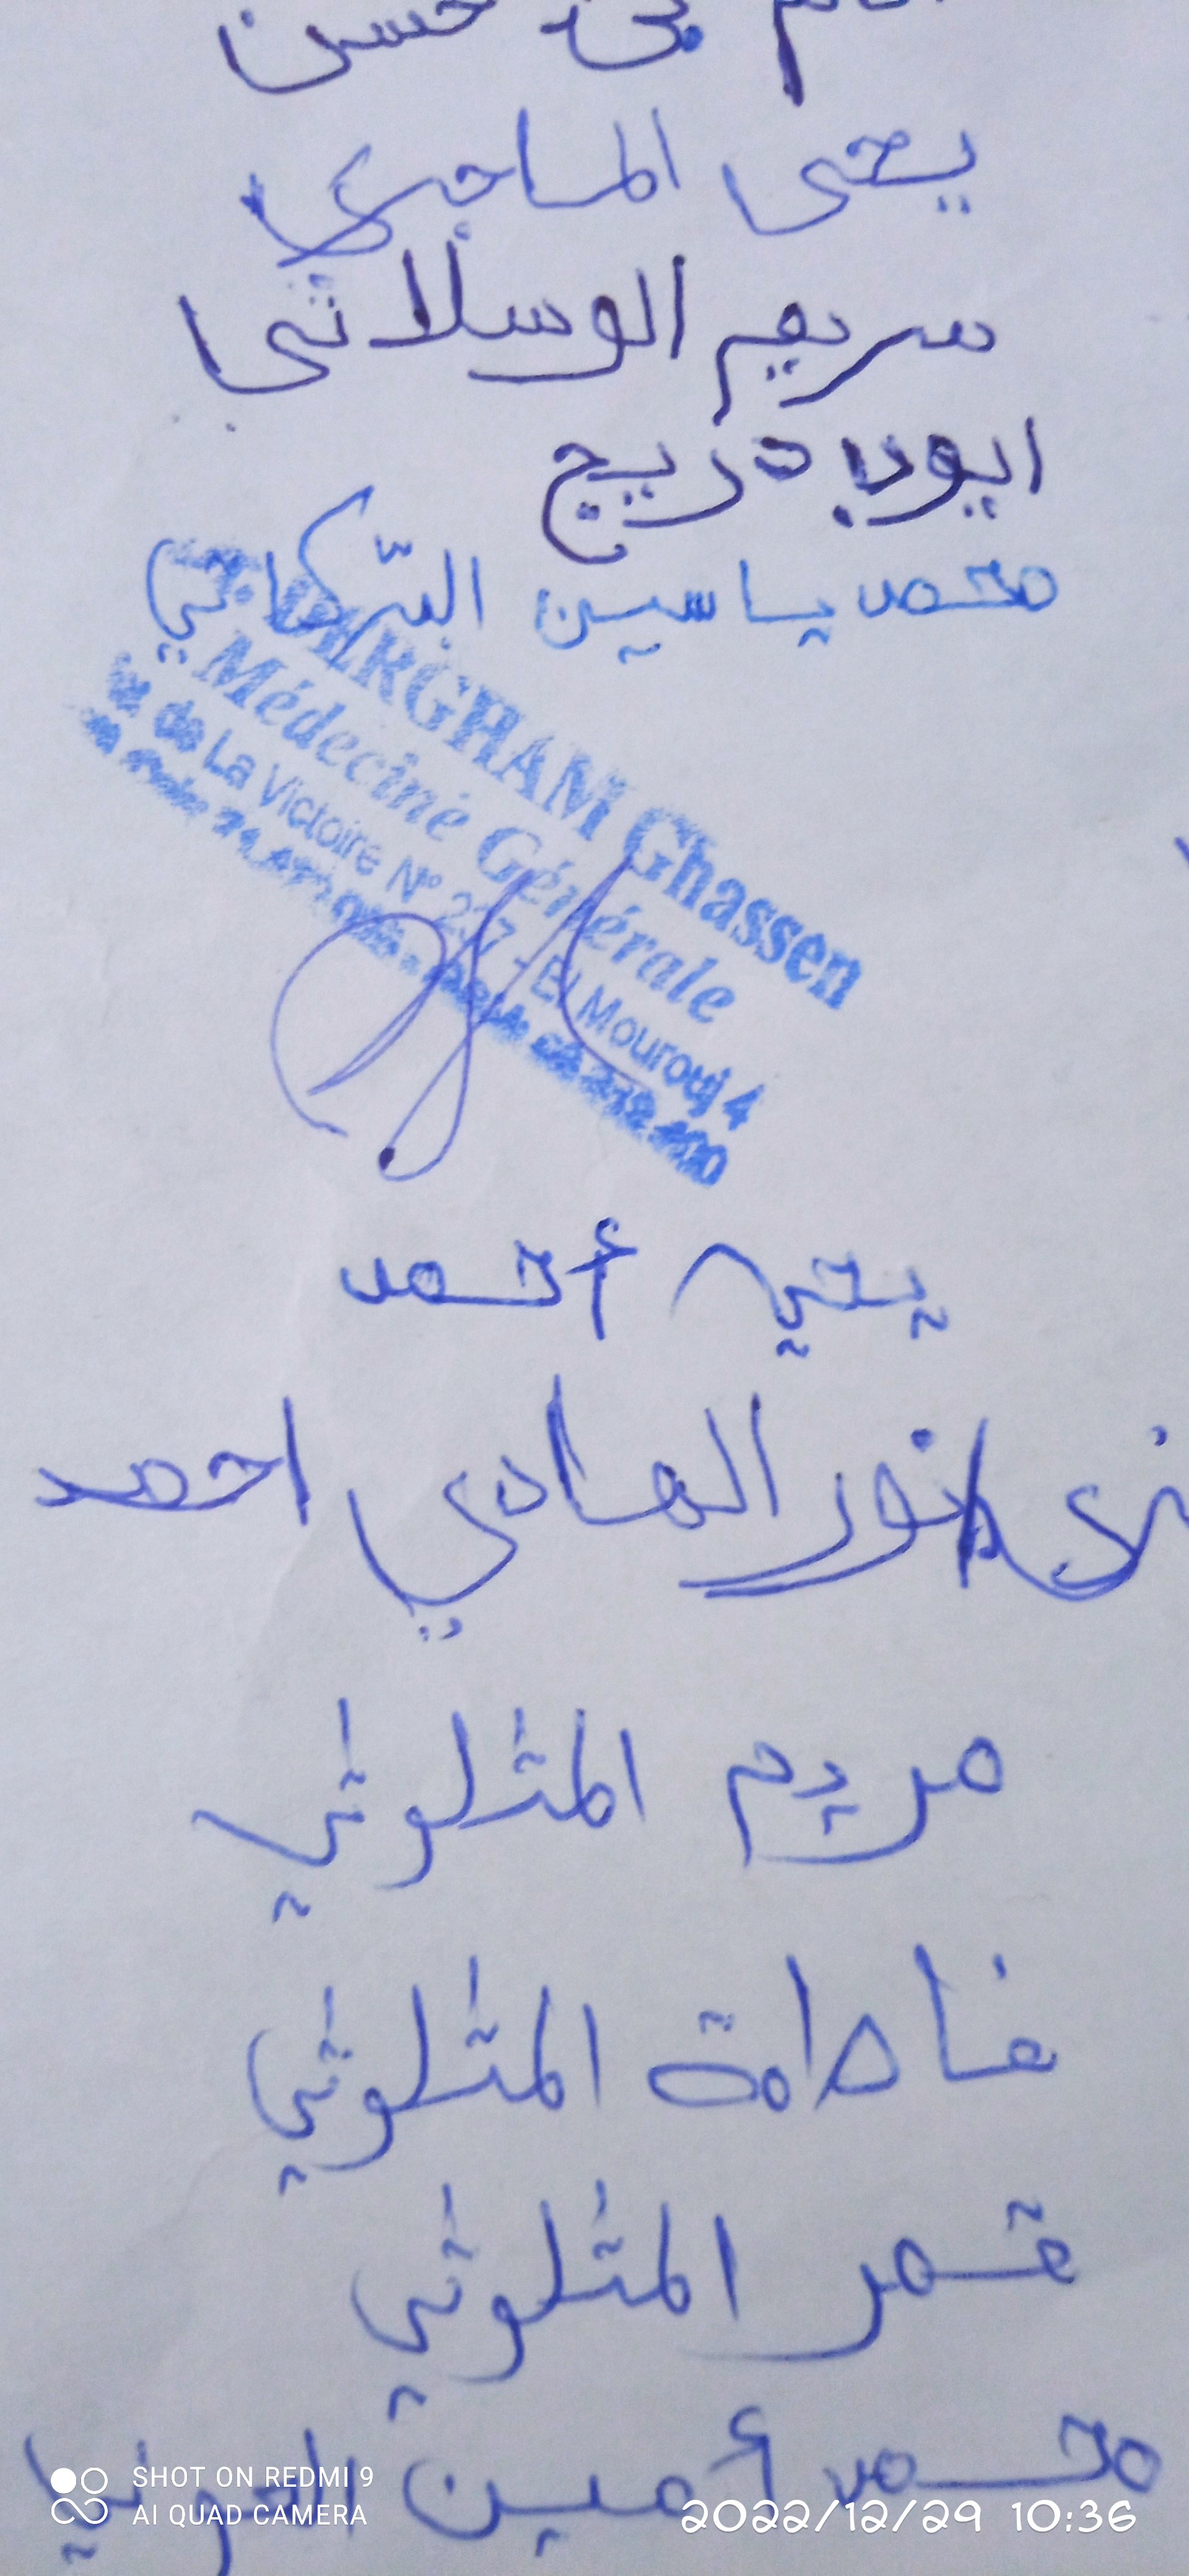 بن حسن
يحي الماجري
مريم الوسلاتي
ايوب دريج
محمد ياسين التركماني
DHIRGHAM Ghassen
Médecine Générale
de La Victoire N° 237 - El Mourouj 4
يحيى أحمد
نور الهادي احمد
مريم المثلوثي
فاطمة المثلوثي
قمر المثلوثي
محمد أمين
SHOT ON REDMI 9
AI QUAD CAMERA
2022/12/29 10:36